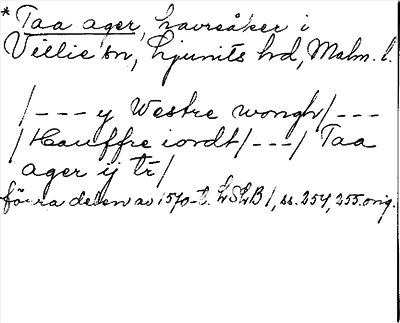 * Taa ager, havreåker i
Villie sn, Ljunits hd, Malm. l.
/--- y Westre wongh/---
/Hauffre iordt/---/ Taa
ager ij tr/
förra delen av 1570-t. LSLB/, ss. 254, 255. orig.